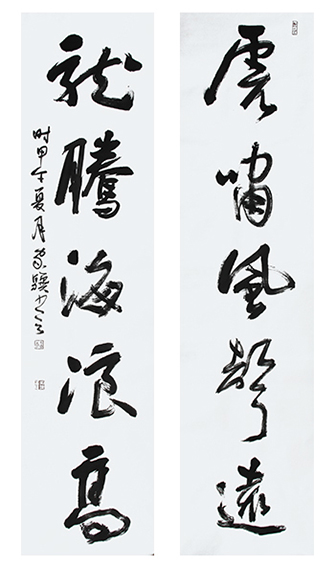 虎嘯風聲遠
龍騰海浪高
时甲午夏月